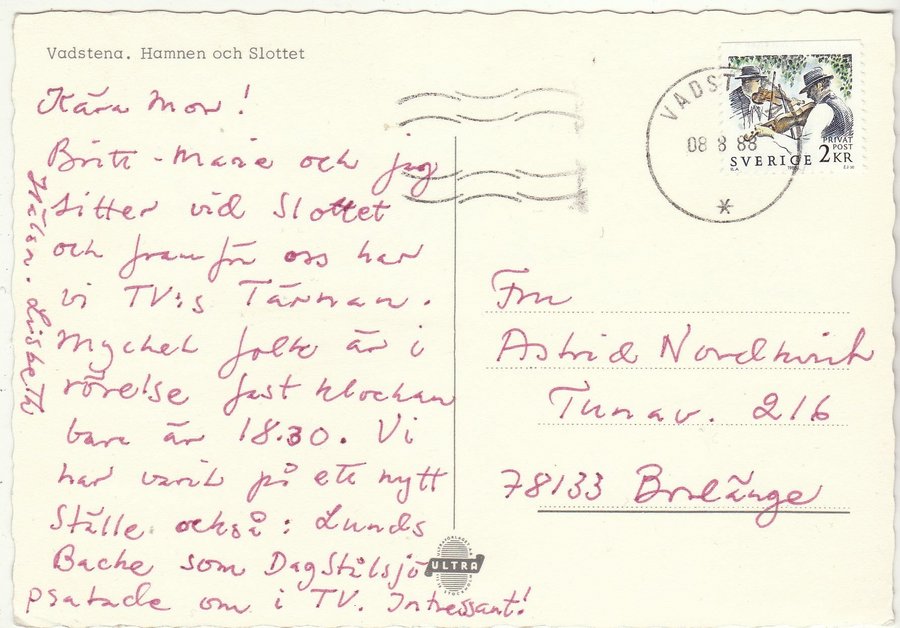 Vadstena. Hamnen och Slottet
Kära Mor!
Britt-Marie och jag
sitter vid Slottet
och framför oss har
vi TV:s Tärnan.
Mycket folk är i
rörelse fast klockan
bara är 18.30. Vi
har varit på ett nytt
Ställe också: Lunds
Backe som Dag Stålsjö
pratade om i TV. Intressant!
Hälsn. Lisbeth
VADST
08 8 88
SVERIGE 2 KR
PRIVAT
POST
Fru
Astrid Nordkvist
Tunav. 216
78133 Borlänge
ULTRA